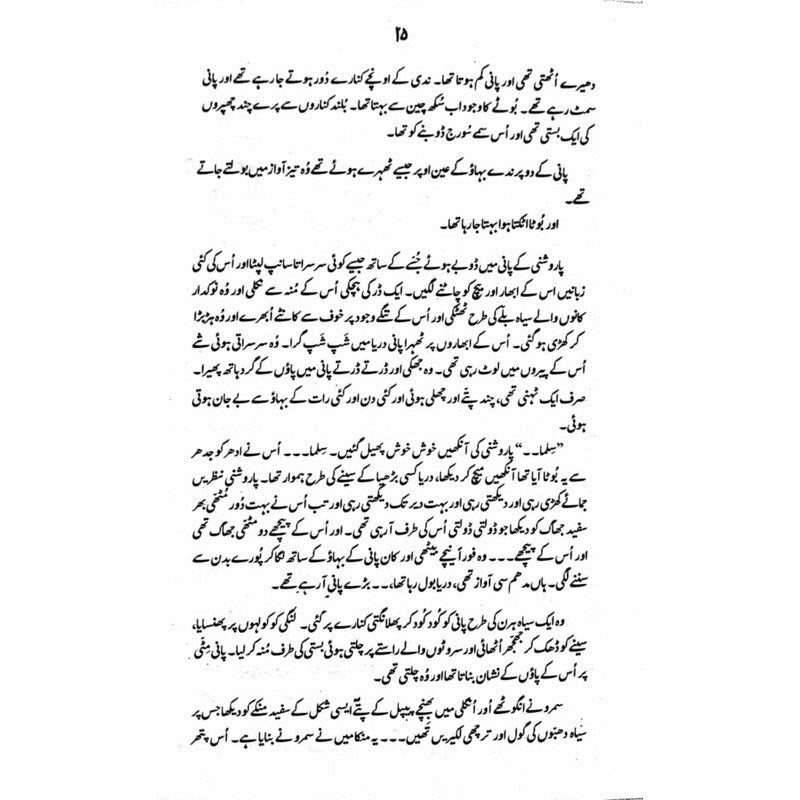 ۲۵
دھیرے اُٹھتی تھی اور پانی کم ہوتا تھا۔ ندی کے اونچے کنارے دُور ہوتے جا رہے تھے اور پانی
سمٹ رہے تھے۔ بُوٹے کا وجود اب سُکھ چین سے بہتا تھا۔ بُلند کناروں سے پرے چند چھپروں
کی ایک بستی تھی اور اُس سمے سُورج ڈوبنے کو تھا۔
پانی کے دو پرندے بہاؤ کے عین اوپر جیسے ٹھہرے ہوئے تھے وُہ تیز آواز میں بولتے جاتے
تھے۔
اور بُوٹا اٹکتا ہوا بہتا جا رہا تھا۔
پاروشنی کے پانی میں ڈوبے ہوئے جُثے کے ساتھ جیسے کوئی سرسراتا سانپ لپٹا اور اُس کی کئی
زبانیں اس کے ابھار اور بیچ کو چاٹنے لگیں۔ ایک ڈر کی ہچکی اُس کے مُنہ سے نکلی اور وُہ نوکدار
کانوں والے سیاہ بلے کی طرح ٹھٹکی اور اُس کے ننگے وجود پر خوف سے کانٹے اُبھرے اور وُہ ہڑبڑا
کر کھڑی ہو گئی۔ اُس کے ابھاروں پر ٹھہرا پانی دریا میں شَپ شَپ گرا۔ وُہ سرسراتی ہوئی شے
اُس کے پیروں میں لوٹ رہی تھی۔ وہ جھکی اور ڈرتے ڈرتے پانی میں پاؤں کے گرد ہاتھ پھیرا۔
صرف ایک ٹہنی تھی، چند پتے اور چھلی ہوئی اور کئی دن اور کئی رات کے بہاؤ سے بے جان ہوتی
ہوئی۔
”سِلما۔۔“ پاروشنی کی آنکھیں خوش خوش پھیل گئیں۔ سِلما۔۔۔ اُس نے ادھر کو جدھر
سے یہ بُوٹا آیا تھا آنکھیں میچ کر دیکھا، دریا کسی بڑھیا کے سینے کی طرح ہموار تھا۔ پاروشنی نظریں
جمائے کھڑی رہی اور دیکھتی رہی اور بہت دیر تک دیکھتی رہی اور تب اُس نے بہت دُور مُٹھی بھر
سفید جھاگ کو دیکھا جو ڈولتی ڈولتی اُس کی طرف آ رہی تھی۔ اور اُس کے پیچھے دو مُٹھی جھاگ تھی
اور اُس کے پیچھے۔۔۔ وہ فوراً نیچے بیٹھی اور کان پانی کے بہاؤ کے ساتھ لگا کر پُورے بدن سے
سننے لگی۔ ہاں مدھم سی آواز تھی، دریا بول رہا تھا،۔۔ بڑے پانی آ رہے تھے۔
وہ ایک سیاہ ہرن کی طرح پانی کو کُود کُود کر پھلانگتی کنارے پر گئی۔ لنگی کو کولہوں پر پھنسایا،
سینے کو ڈھک کر جھجھر اُٹھائی اور سروٹوں والے راستے پر چلتی ہوئی بستی کی طرف مُنہ کر لیا۔ پانی مِٹی
پر اُس کے پاؤں کے نشان بناتا تھا اور وُہ چلتی تھی۔
سمرو نے انگوٹھے اور اُنگلی میں بھنچے پیپل کے پتے ایسی شکل کے سفید منکے کو دیکھا جس پر
سیاہ دھبّوں کی گول اور ترچھی لکیریں تھیں۔۔۔ یہ منکا میں نے سمرو نے بنایا ہے۔ اُس پتھر